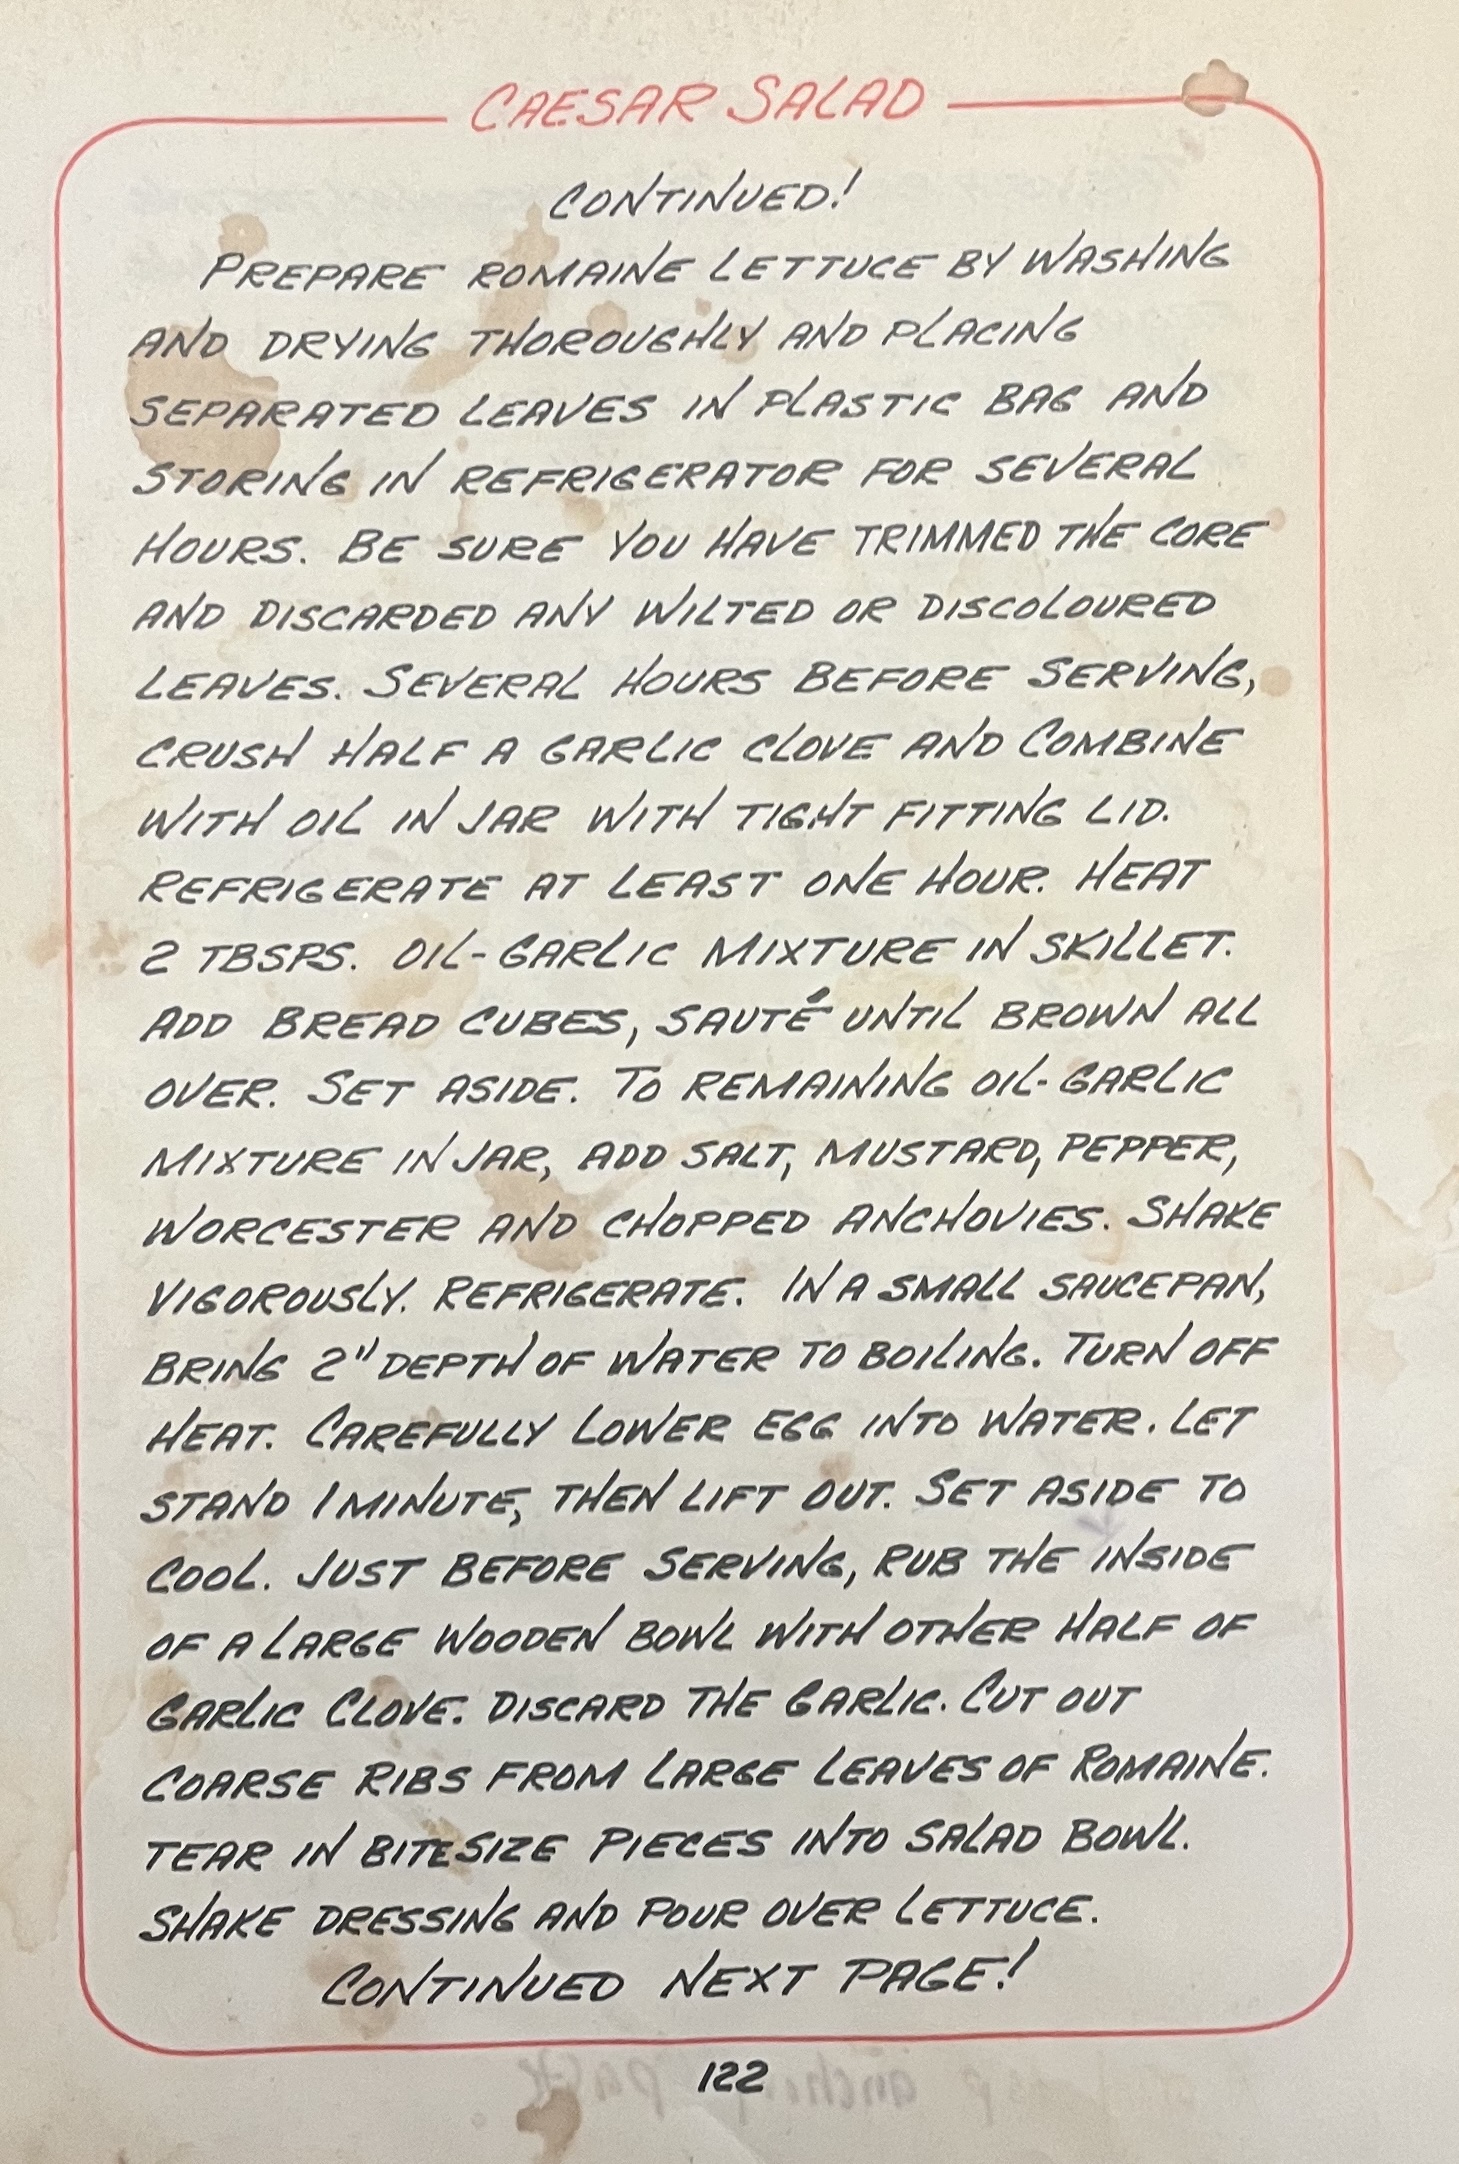 CAESAR SALAD
CONTINUED!
PREPARE ROMAINE LETTUCE BY WASHING
AND DRYING THOROUGHLY AND PLACING
SEPARATED LEAVES IN PLASTIC BAG AND
STORING IN REFRIGERATOR FOR SEVERAL
HOURS. BE SURE YOU HAVE TRIMMED THE CORE
AND DISCARDED ANY WILTED OR DISCOLOURED
LEAVES. SEVERAL HOURS BEFORE SERVING,
CRUSH HALF A GARLIC CLOVE AND COMBINE
WITH OIL IN JAR WITH TIGHT FITTING LID.
REFRIGERATE AT LEAST ONE HOUR. HEAT
2 TBSPS. OIL-GARLIC MIXTURE IN SKILLET.
ADD BREAD CUBES, SAUTÉ UNTIL BROWN ALL
OVER. SET ASIDE. TO REMAINING OIL-GARLIC
MIXTURE IN JAR, ADD SALT, MUSTARD, PEPPER,
WORCESTER AND CHOPPED ANCHOVIES. SHAKE
VIGOROUSLY. REFRIGERATE. IN A SMALL SAUCEPAN,
BRING 2" DEPTH OF WATER TO BOILING. TURN OFF
HEAT. CAREFULLY LOWER EGG INTO WATER. LET
STAND 1 MINUTE, THEN LIFT OUT. SET ASIDE TO
COOL. JUST BEFORE SERVING, RUB THE INSIDE
OF A LARGE WOODEN BOWL WITH OTHER HALF OF
GARLIC CLOVE. DISCARD THE GARLIC. CUT OUT
COARSE RIBS FROM LARGE LEAVES OF ROMAINE.
TEAR IN BITESIZE PIECES INTO SALAD BOWL.
SHAKE DRESSING AND POUR OVER LETTUCE.
CONTINUED NEXT PAGE!
122